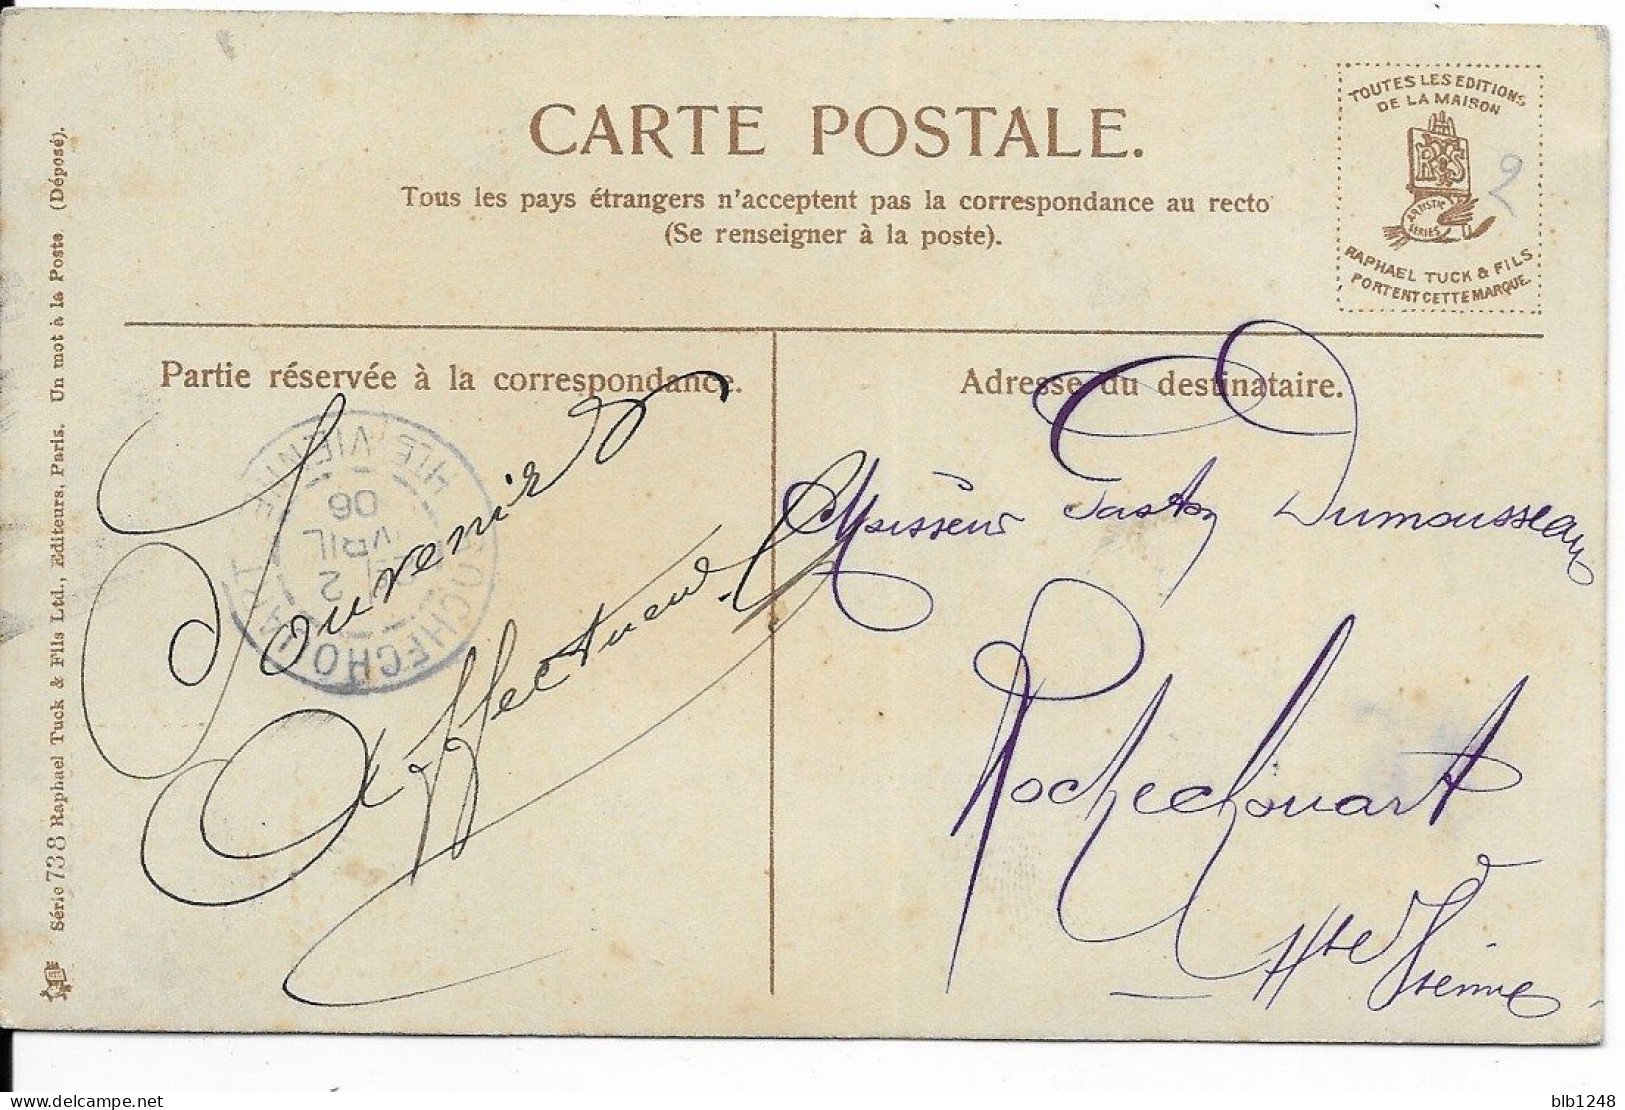 CARTE POSTALE.
Tous les pays étrangers n'acceptent pas la correspondance au recto
(Se renseigner à la poste).
TOUTES LES EDITIONS
DE LA MAISON
ARTISTIC
SERIES
RAPHAEL TUCK & FILS
PORTENT CETTE MARQUE.
2
Série 738 Raphael Tuck & Fils Ltd., Editeurs, Paris. Un mot à la Poste (Déposé).
Partie réservée à la correspondance.
Souvenir
Affectueux
ROCHECHOUART
HTE VIENNE
2
AVRIL
06
Adresse du destinataire.
Monsieur Gaston Dumousseau
Rochechouart
Hte Vienne
blb1248